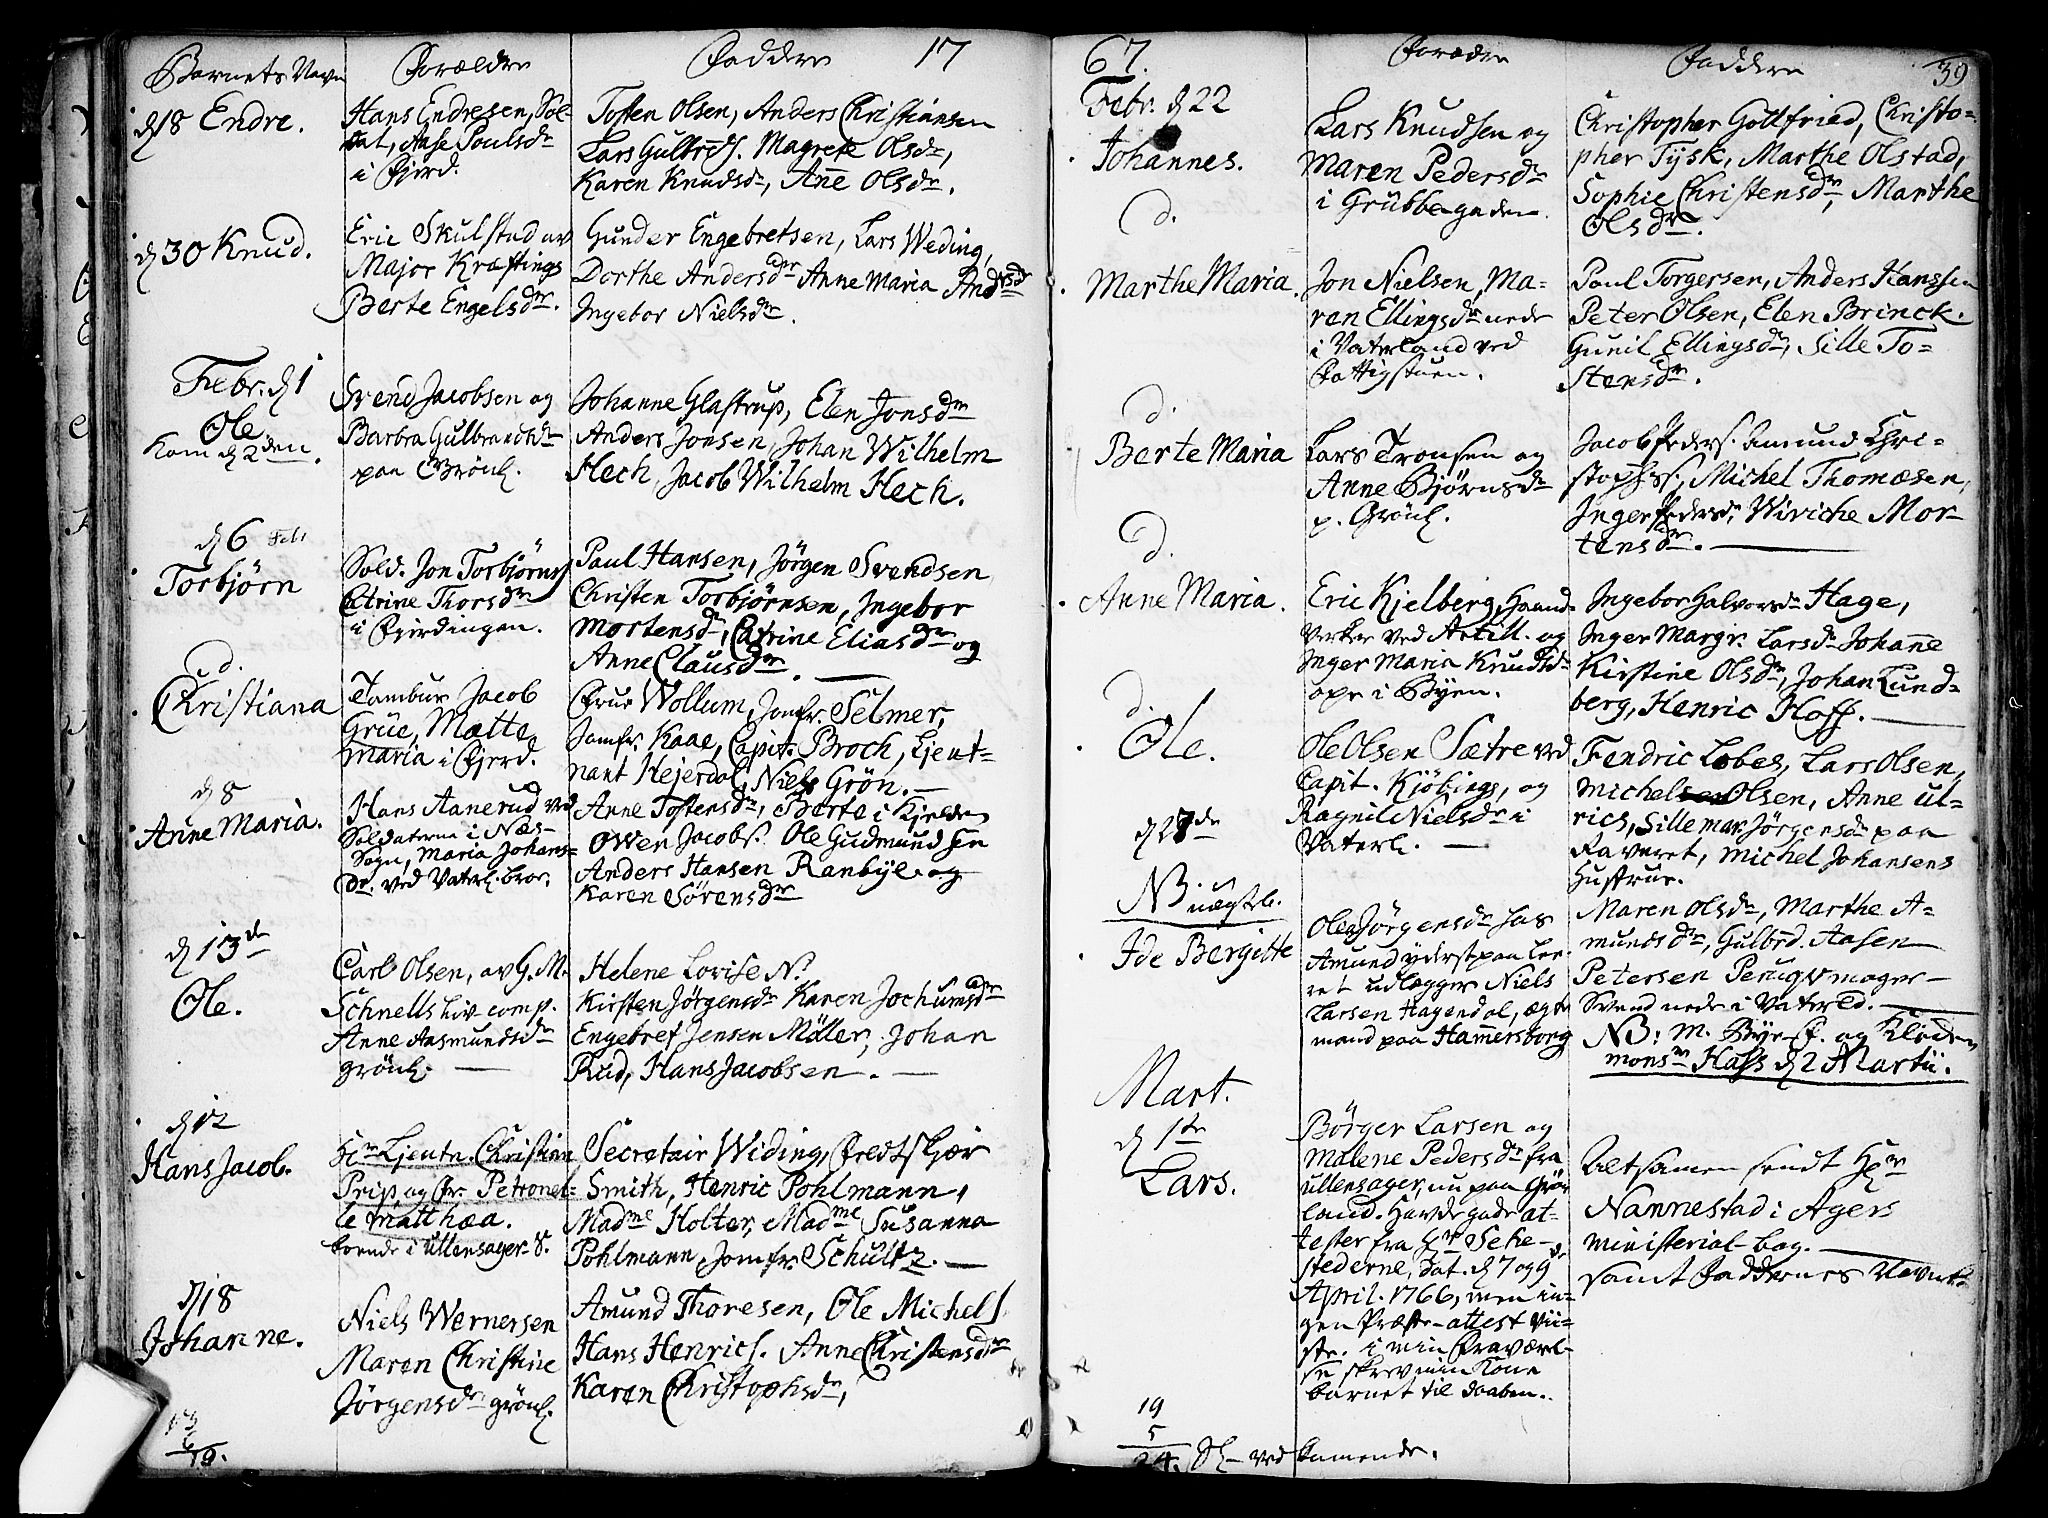 Barnets Navn
Forældre
Faddere
17
d 18 Endre.
Hans Endresen, Sol-
dat, Aase Poulsdr
i Fjerd.
Tosten Olsen, Anders Christiansen
Lars Gulbrds. Magrete Olsdr,
Karen Knudsdr, Anne Olsdr.
d 30 Knud.
Eric Skulstad av
Major Kraftings
Berte Engelsdr.
Gunder Engebretsen, Lars Weding,
Dorthe Andersdr Anne Maria Andrsdr
Ingebor Nielsdr.
Febr. d 1
Ole
Kom d 2den.
Svend Jacobsen og
Barbra Gulbrandsdr
paa Grönl.
Johanne Glastrup, Elen Jonsdr
Anders Jonsen, Johan Wilhelm
Hech, Jacob Wilhelm Hech.
d 6 Febr
Torbjörn
Sold. Jon Torbjörns
Catrine Thorsdr
i Fjerdingen.
Paul Hansen, Jörgen Svendsen
Christen Torbjörnsen, Ingebor
Mortensdr, Catrine Eliasdr og
Anne Clausdr.
d.
Christiana
Tambur Jacob
Grüe, Mætte
Maria i Fjerd.
Frue Wollum, Jomfr. Selmer,
Jomfr. Kaae, Capit. Broch, Ljent-
nant Hejerdal, Niels Grön.
d 8
Anne Maria.
Hans Aanerud ved
Soldaterne i Næs-
Sogn, Maria Johans-
dr. ved Vaterl. broe.
Anne Tostensdr, Berte i Kjelden
Owen Jacobs. Ole Gudmundsen
Anders Hansen Ranbye og
Karen Sörensdr
d 13de
Ole.
Carl Olsen, av G. M.
Schnells liv-comp.
Anne Aasmundsdr
grönl.
Helene Lovise N.
Kirsten Jörgensdr Karen Jochumsdr
Engebret Jensen Möller, Johan
Rud, Hans Jacobsen.
d 12
Hans Jacob.
Hr Ljeutn. Christian
Prip, og fr. Petronel-
le Matthæa.
boende i Ullensager S.
Secretair Widing, Fredt
Smith, Henric Pohlmann,
Madme Holter, Madme Susanna
Pohlmann, Jomfr. Schultz.
d 18
Johanne.
Niels Wernersen
Maren Christine
Jörgensdr grönl.
Amund Thoresen, Ole Michels
Hans Henrics. Anne Christensdr
Karen Christophsdr,
13
6
19.
67.
Forældre
Faddere
39
Febr. d 22
Johannes.
Lars Knudsen og
Maren Pedersdr
i Grübbegaden.
Christopher Gottfried, Christo-
pher Tysk, Marthe Olstad,
Sophie Christensdr, Marthe
Olsdr.
d.
Marthe Maria.
Jon Nielsen, Ma-
ren Ellingsdr nede
i Vaterland ved
Fattigstuen.
Paul Torgersen, Anders Hanssen
Peter Olsen, Elen Brinck.
Gunil Ellingsdr, Sille To-
stensdr.
d.
Berte Maria
Lars Tronsen og
Anne Björnsdr
p. Grönl.
Jacob Peders. Amund Chri-
stophs., Michel Thomæsen,
Inger Pedersdr, Wiviche Mor-
tensdr.
d.
Anne Maria.
Eric Kjelberg, Haand-
verker ved Artill. og
Inger Maria Knudsdr
ope i Byen.
Ingebor Halvorsdr Hage,
Inger Margr. Larsdr Johanne
Kirstine Olsdr, Johan Lund-
berg, Henric Hoff.
d.
Ole.
Ole Olsen Sætre ved
Capit. Kjöbings, og
Ragnil Nielsdr i
Vaterl.
Fendric Lobes, Lars Olsen,
Michel Olsen, Anne Ul-
rics, Sille Mar. Jörgensdr paa
Raveret, Michel Johansens
Hustrue.
d 27de
NB. uægteb.
Ide Bergitte
Ole Jörgensdr hos
Amund yderst paa Ler-
ret udlegger Niels
Larsen Hagendal, ægte
mand paa Hammersborg
Maren Olsdr, Marthe A-
mundsdr, Gulbrd. Aasen
Petersen Peruqvmager
Svend nede i Vaterld.
NB: M. Bye-f. og Kloden
monsr Hass d 2 Martii.
Mart.
d 1te
Lars.
Börger Larsen og
Malene Pedersdr fra
Ullensager, nu paa Grön
land. Havde gode at-
tester fra Hr Sehe-
stederne, dat. d 7 og 9de
April. 1766, men in-
gen Præste-attest vii-
ste. i min Fraværel-
se skrev min Kone
barnet til daaben.
Altsamen sendt Hr
Nannestad i Agers
ministerial-bog.
samt Faddernes Navne.
19
5
24. ved kommende.